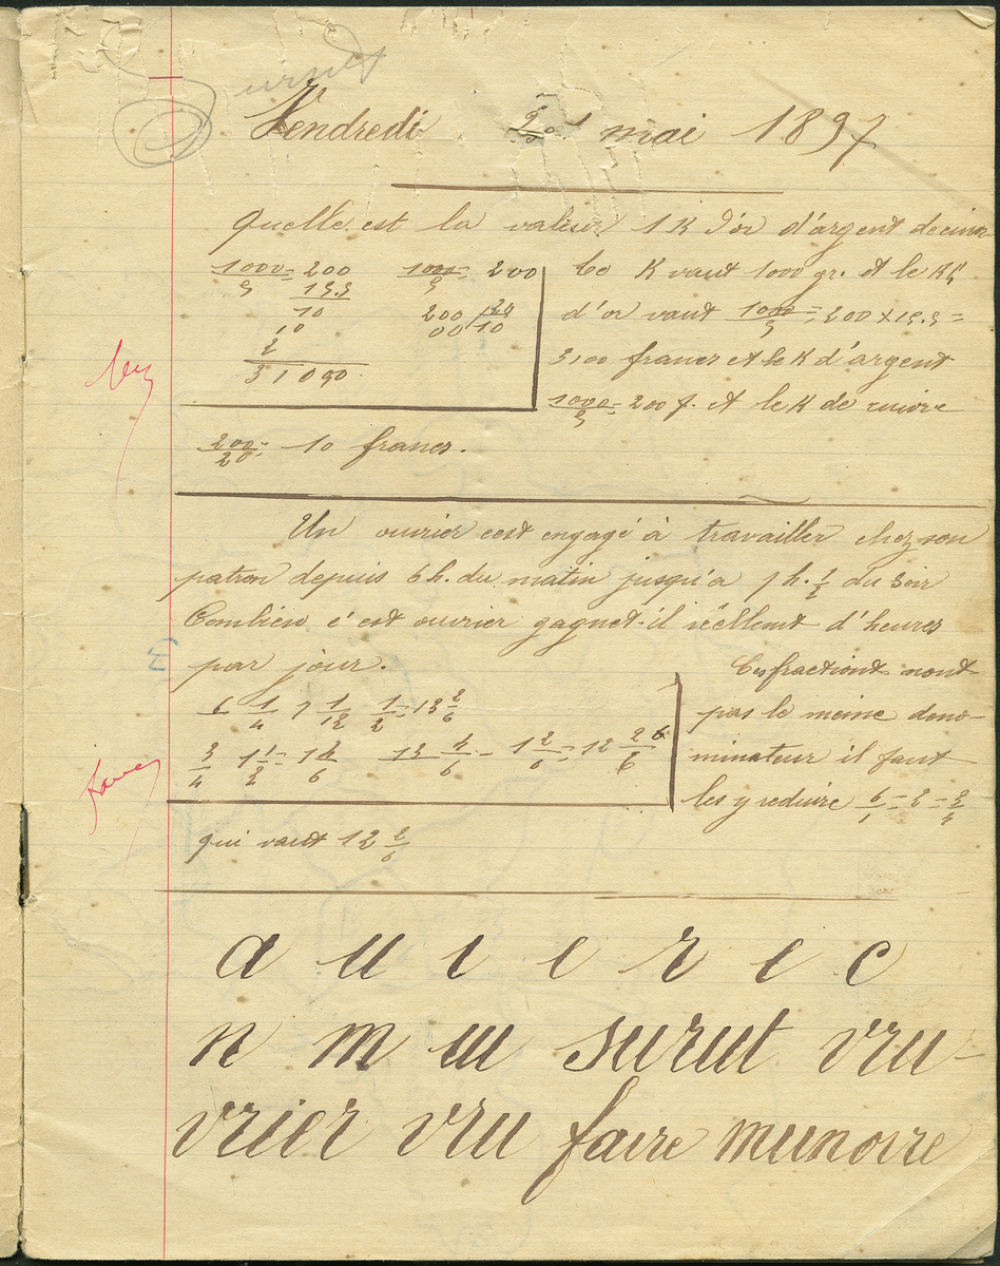 Vendredi 21 mai 1897
Quelle est la valeur 1 K d'or d'argent de cuiv
1000/5 = 200 1000/5 = 200
15.5
10 200 /20
10 00 10
2
31 000
Le K vaut 1000 gr. et le K
d'or vaut 1000/5 = 200 x 15.5 =
3100 francs et le K d'argent
1000/5 = 200 f. et le K de cuivre
200/20 = 10 francs.
Un ouvrier cest engagé à travailler chez son
patron depuis 6 h. du matin jusqu'a 7 h. 1/2 du soir
Combien c'est ouvrier gagnet-il réellemt d'heures
par jour.
6 1/4 7 1/12 1/2 = 13 2/6
3/4 1 1/2 = 1 2/6 13 4/6 - 1 2/6 = 12 2/6
Ces fractiont nont
pas le meme deno-
minateur il faut
les y reduire 6/1 = 2 = 3/4
qui vaut 12 2/6
a u i e r e c
n m uu surut vru-
vrier vru faire munoire